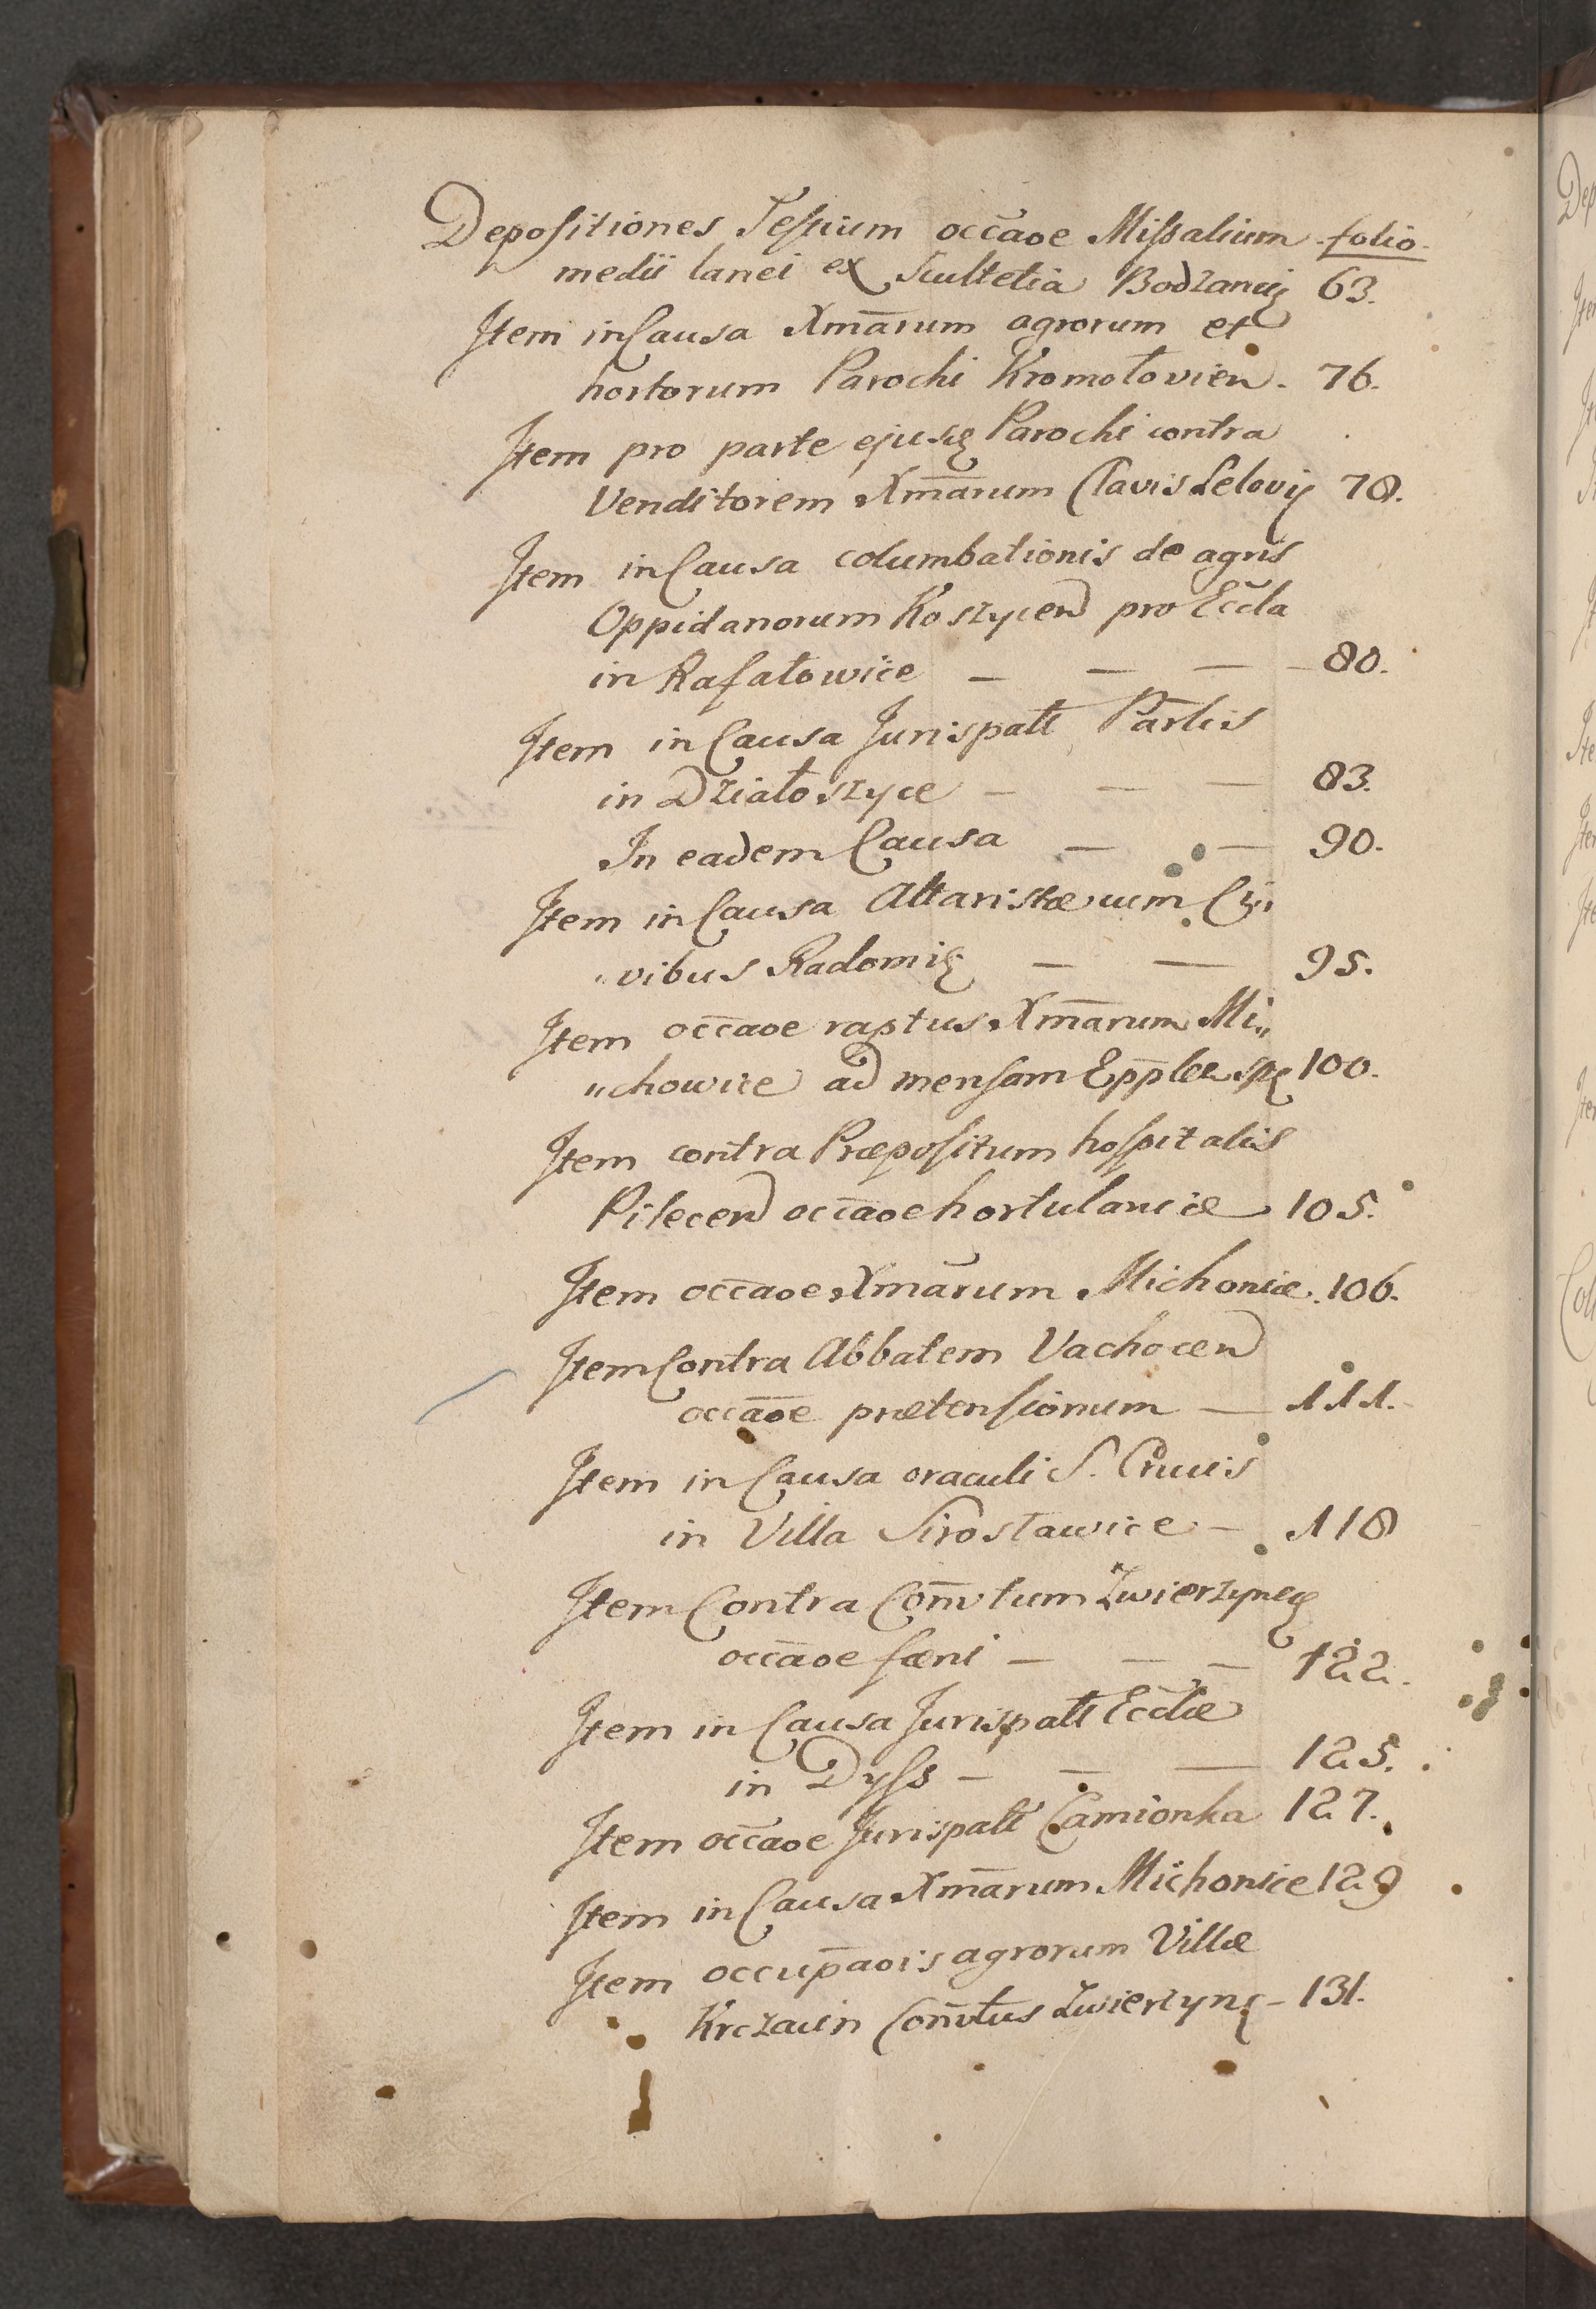 Depositiones Testium occãoe Missalium folio.
medii lanei ex Scultetia Bodzancij 63.
Item in Causa Xmãrum agrorum et
hortorum Parochi Kromołovien. 76.
Item pro parte ejusdẽ Parochi contra
Venditorem Xmãrum Clavis Lelovij 78.
Item in Causa columbationis de agris
Oppidanorum Koszycen pro Eccla
in Rafałowice — — — 80.
Item in Causa Jurispatt Partis
in Działoszyce — — — 83.
In eadem Causa — — 90.
Item in Causa Altaristæ cum Ci„
„vibus Radomię — — 95.
Item occãoe raptus Xmãrum Mi„
„chowice ad mensam Epplẽ 100.
Item contra Præpositum hospitalis
Pilecen occãoe hortulaniæ 105.
Item occãoe Xmãrum Michonice. 106.
Item Contra Abbatem Vachocen
occãoe prætensionum — 111.
Item in Causa oraculi S. Crucis
in Villa Sirosławice — 118
Item Contra Conṽtum Zwierzynẽ
occãoe fæni — — — 122.
Item in Causa Jurispatt Eccliæ
in Dyss — — — 125.
Item occãoe Jurispatt Camionka 127.
Item in Causa Xmãrum Michonice 129
Item occupãois agrorum Villæ
Krczaẽin Conṽtus Zwierzynẽ — 131.